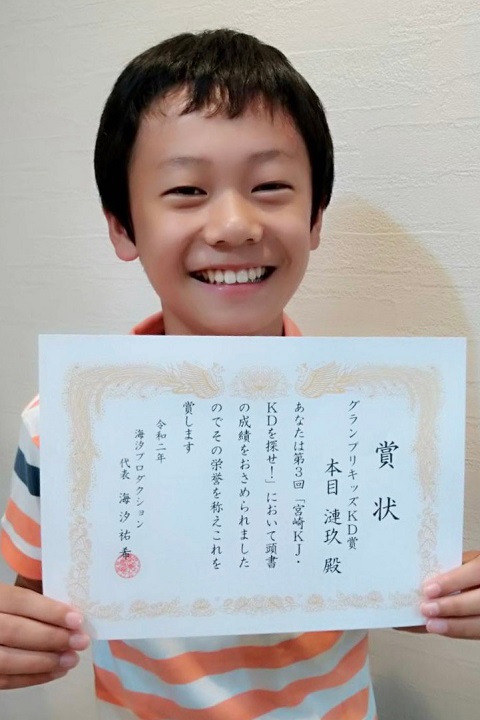 賞状
グランプリキッズKD賞
本目 漣玖 殿
あなたは第3回「宮崎KJ・
KDを探せ!」において頭書
の成績をおさめられました
のでその栄誉を称えこれを
賞します
令和二年
海汐プロダクション
代表 海汐祐希